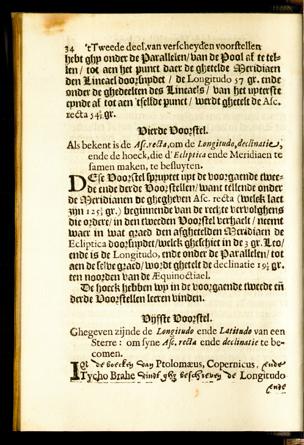 34 'tTweede deel, van verscheyden voorstellen
hebt ghy onder de Parallelen/van de Pool af te tel-
len/ tot aen het punct daer de ghetelde Meridiaen
den Lineael doorsnydt / de Longitudo 57 gr. ende
onder de ghedeelten des Lineaels / van het uyterste
eynde af tot aen 'tselve punct / werdt ghetelt de Asc.
recta 54½ gr.
Vierde Voorstel.
Als bekent is de Asc. recta, om de Longitudo, declinatie,
ende de hoeck, die d'Ecliptica ende Meridiaen te
samen maken, te besluyten.
DEse Voorstel spruytet uyt de voorgaende twee-
de ende derde Voorstellen/ want tellende onder
de Meridianen de ghegheven Asc. recta (welck laet
zyn 125½ gr.) beginnende van de rechte vervolghens
die ordere/in den tweeden Voorstel verhaelt / neemt
waer in wat graed den afghetelden Meridiaen de
Ecliptica doorsnydt/welck gheschiet in de 3 gr. Leo/
ende is de Longitudo, ende onder de Parallelen/ tot
aen de selve graed/ wordt ghetelt de declinatie 19½ gr.
ten noorden van de Æquinoctiael.
De hoeck hebben wy in de voorgaende tweede en
derde Voorstellen leeren vinden.
Vijfste Voorstel.
Ghegeven zijnde de Longitudo ende Latitudo van een
Sterre: om syne Asc. recta ende declinatie te be-
comen.
In de boecken van Ptolomæus, Copernicus, ende
Tycho Brahe vindt ghy beschreven de Longitudo
ende